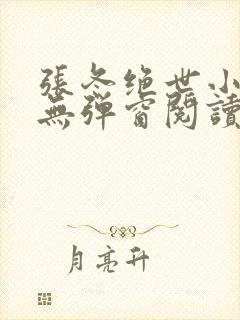 張冬绝世小
無彈窗閱讀
月亮升